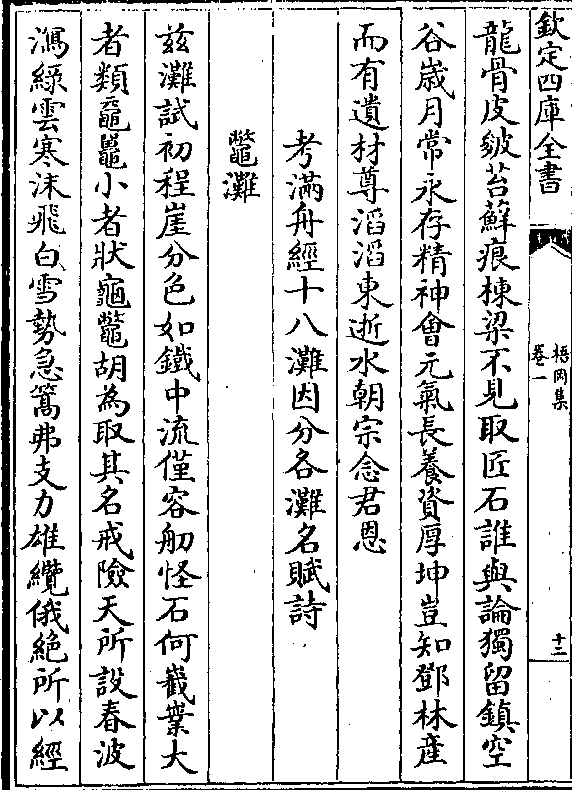 欽定四庫全書
梧岡集
卷一
十二
龍骨皮皴苔蘚痕棟梁不見取匠石誰與論獨留鎮空
谷嵗月常永存精神㑹元氣長養資厚坤豈知鄧林産
而有遺材尊滔滔東逝水朝宗念君恩
考滿舟經十八灘因分各灘名賦詩
鼈灘
兹灘試初程崖分色如鐵中流僅容舠怪石何嶻嶪大
者類黿鼉小者狀龜鼈胡為取其名戒險天所設春波
瀉緑雲寒沫飛白雪勢急篙弗支力雄纜俄絶所以經